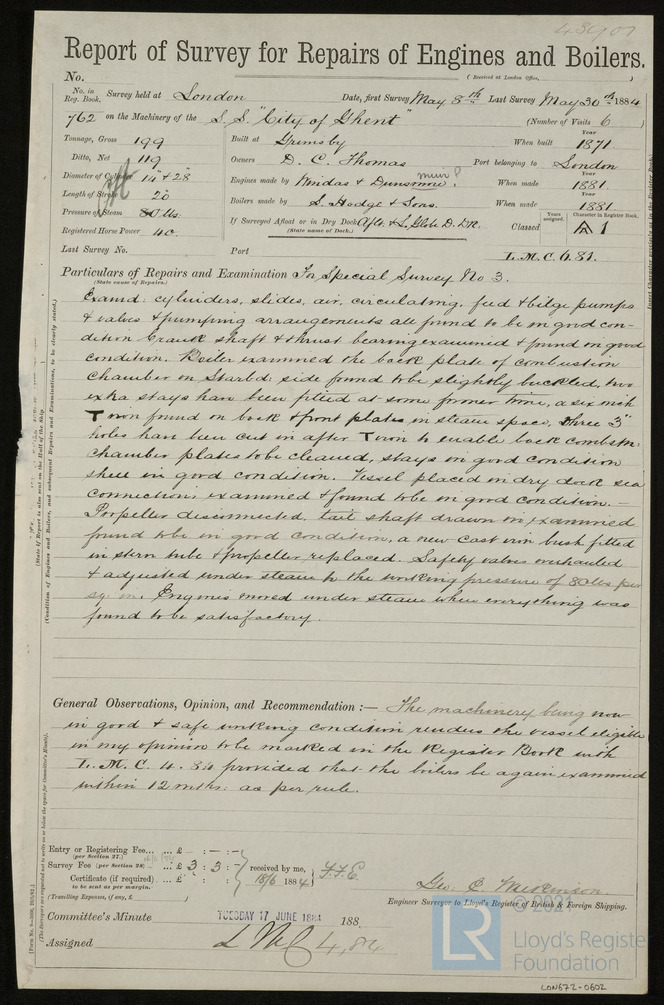 43907
Report of Survey for Repairs of Engines and Boilers.
No. (Received at London Office, )
No. in Reg. Book. Survey held at London Date, first Survey May 8th Last Survey May 30th 1884
762 on the Machinery of the S.S. "City of Ghent" (Number of Visits 6)
Tonnage, Gross 199 Built at Grimsby When built Year 1871
Ditto, Net 119 Owners D. C. Thomas Port belonging to London
Diameter of Cylinder 14" & 28 Engines made by & Dunsmore When made Year 1881
Length of Stroke 20 Boilers made by S. Hodge & Sons. When made Year 1881
Pressure of Steam 80 lbs. If Surveyed Afloat or in Dry Dock Aflt. & S. Globe D. Dk. Classed Years assigned. Character in Register Book. A 1
(State name of Dock.)
Registered Horse Power 40
Last Survey No. Port L.M.C. 6.81.
Particulars of Repairs and Examination For Special Survey No 3.
(State cause of Repairs.)
Examd: cylinders, slides, air, circulating, feed & bilge pumps
& valves & pumping arrangements all found to be in good con-
dition Crank shaft & thrust bearing examined & found in good
condition. Boiler examined the back plate of combustion
chamber on Starbd: side found to be slightly buckled, two
extra stays have been fitted at some former time, a six inch
T iron found on back & front plates in steam space, three 3"
holes have been cut in after T iron to enable back combstn:
chamber plates to be cleaned, stays in good condition
shell in good condition. Vessel placed in dry dock sea
connections examined & found to be in good condition. -
Propeller disconnected, tail shaft drawn in examined
found to be in good condition, a new cast iron bush fitted
in stern tube & propeller replaced. Safety valves overhauled
& adjusted under steam to the working pressure of 80 lbs per
sq. in. Engines moved under steam when everything was
found to be satisfactory.
General Observations, Opinion, and Recommendation :— The machinery being now
in good & safe working condition renders the vessel eligible
in my opinion to be marked in the Register Book with
L. M. C. 4. 84 provided that the boilers be again examined
within 12 mths: as per rule.
Entry or Registering Fee... ... £ : - : -
(per Section 27.)
Survey Fee (per Section 28) ... £ 3 : 3 : - received by me,
Certificate (if required) ... £ : : 18/6 1884 F.F.E
to be sent as per margin.
(Travelling Expenses, if any, £ )
Geo. C.
Engineer Surveyor to Lloyd's Register of British & Foreign Shipping.
Committee's Minute TUESDAY 17 JUNE 1884 188
Assigned L M C 4,84
© 2021
LR Lloyd's Register
Foundation
LON672-0602